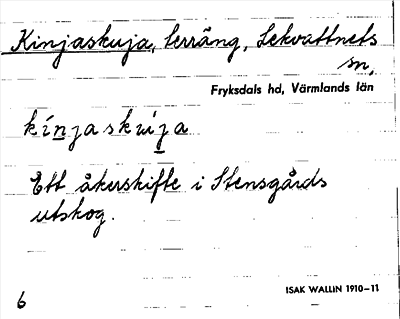 Kinjaskuja, terräng, Lekvattnets
sn,
Fryksdals hd, Värmlands län
kínjaskuìja
Ett åkerskifte i Stensgårds
utskog.
6
ISAK WALLIN 1910–11